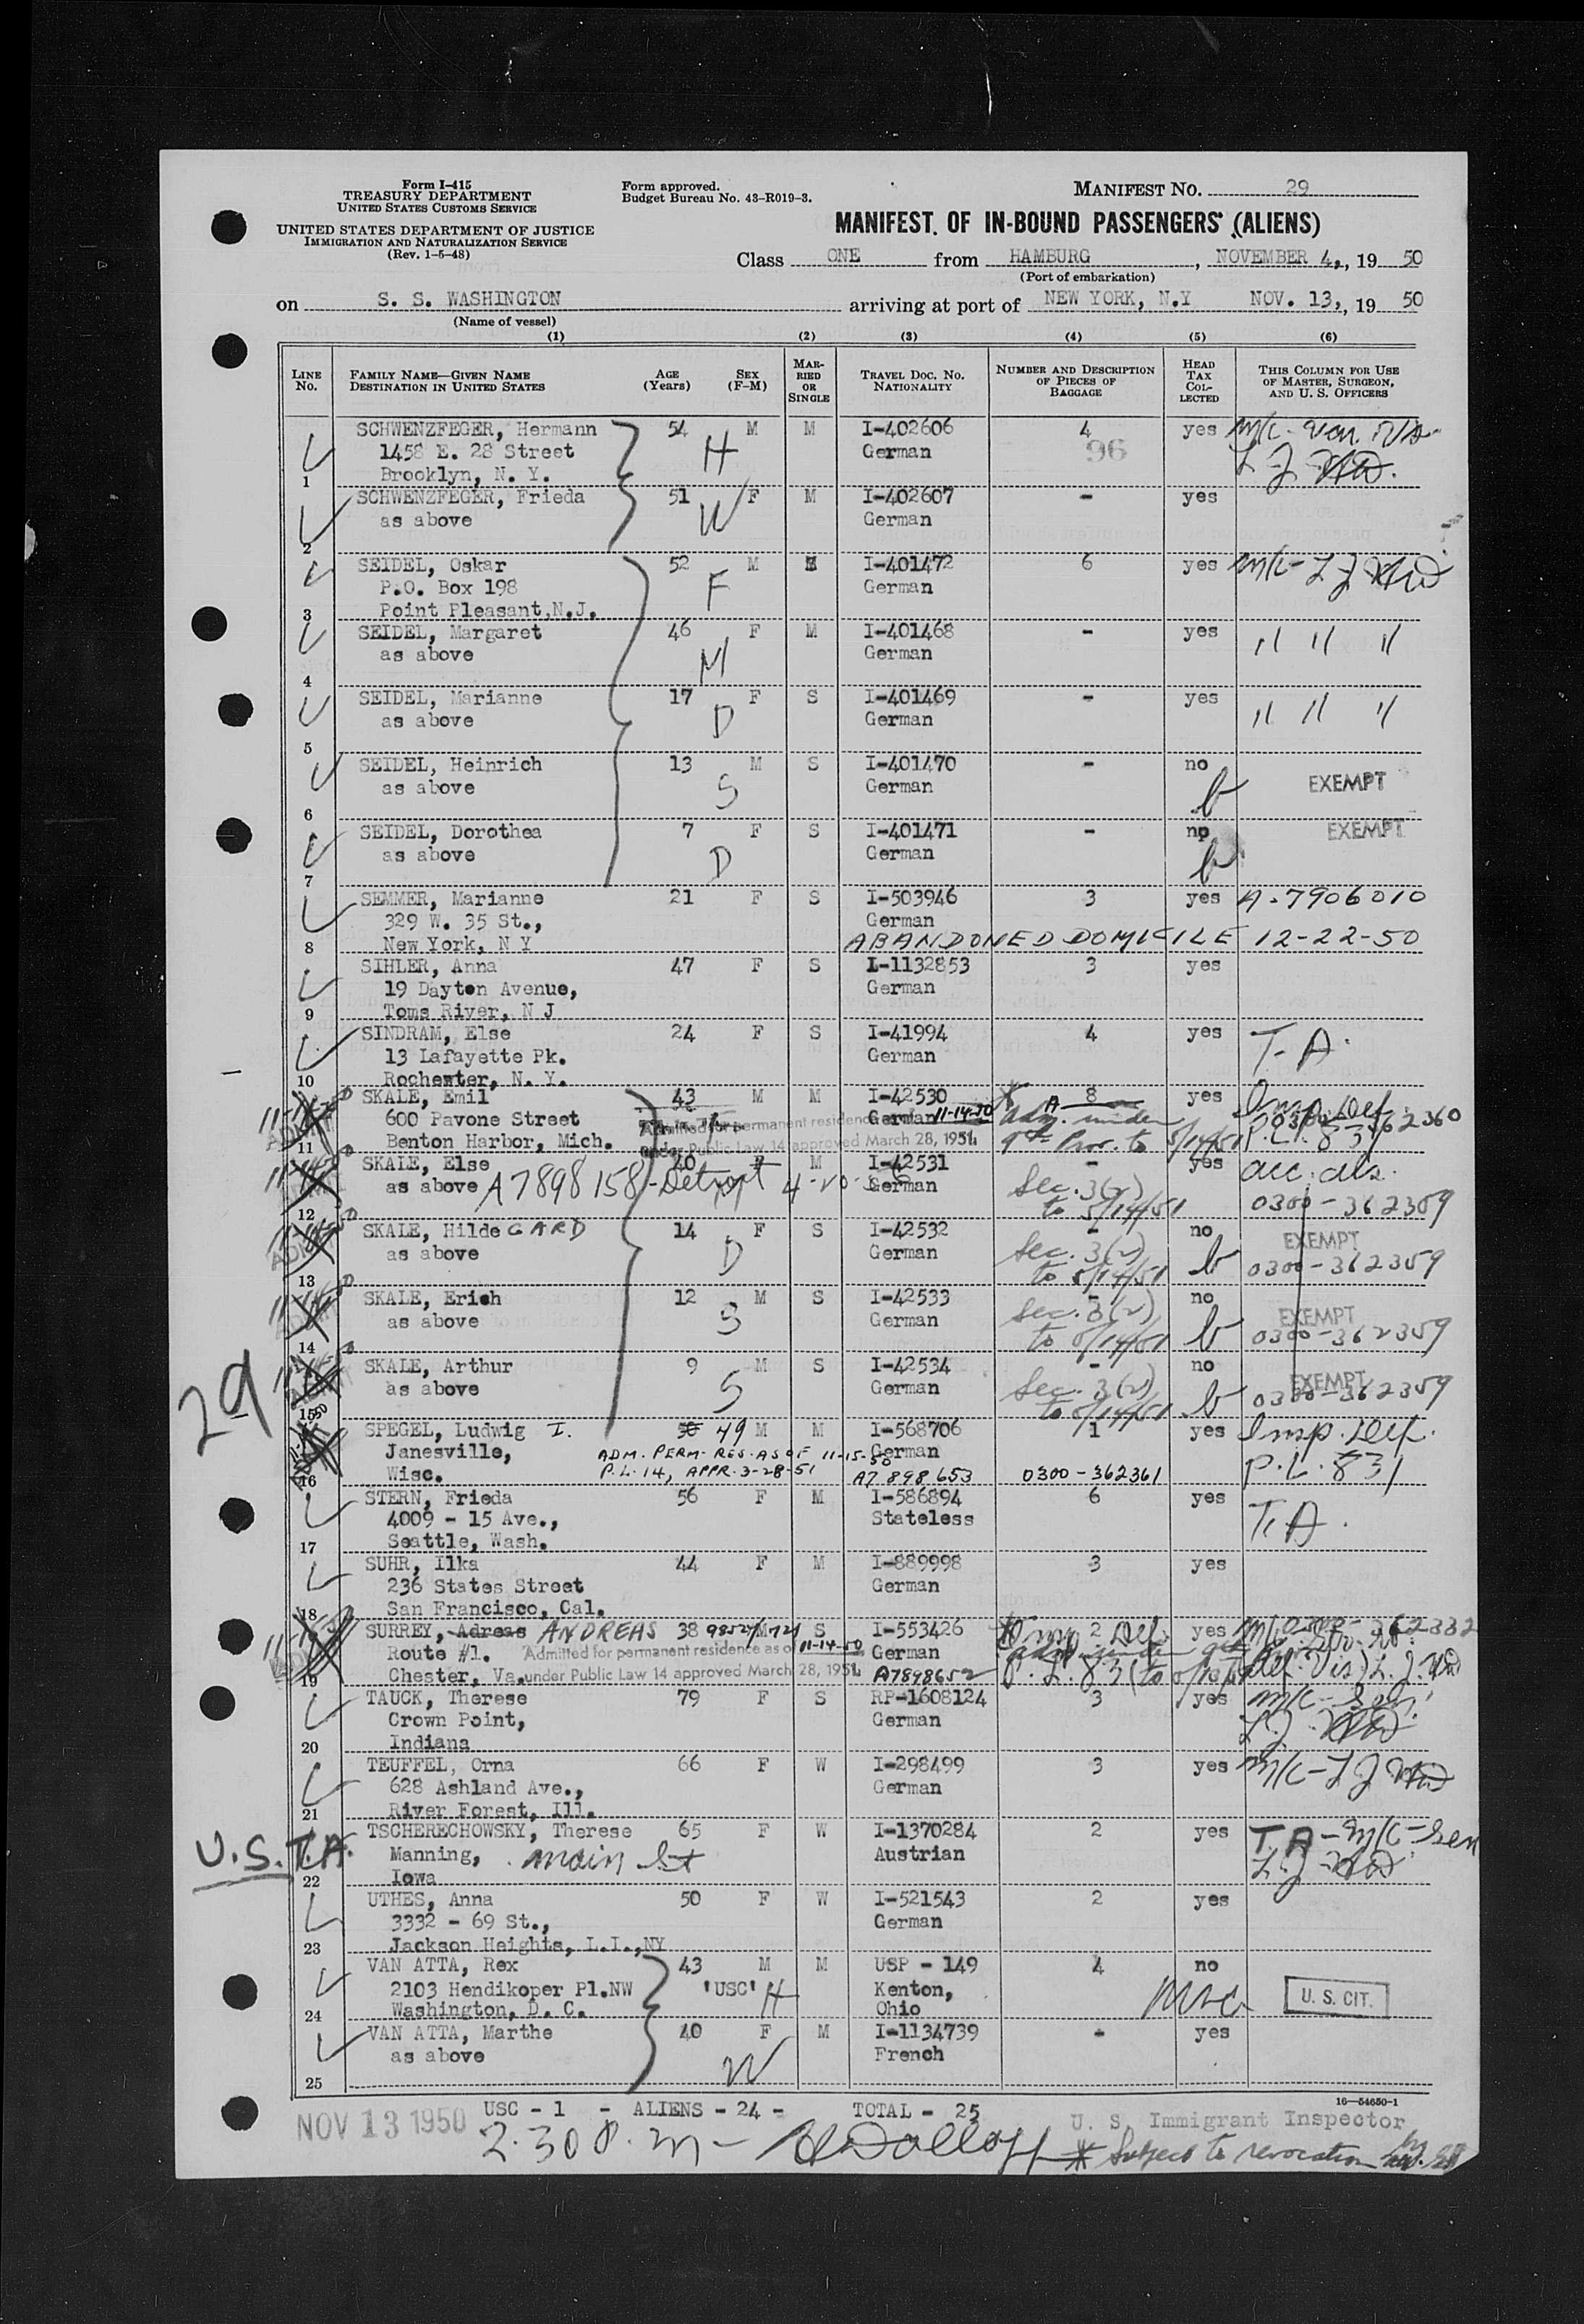 Form I-415
TREASURY DEPARTMENT
UNITED STATES CUSTOMS SERVICE
UNITED STATES DEPARTMENT OF JUSTICE
IMMIGRATION AND NATURALIZATION SERVICE
(Rev. 1-5-48)
Form approved.
Budget Bureau No. 43-R019-3.
MANIFEST No. 29
MANIFEST OF IN-BOUND PASSENGERS (ALIENS)
Class ONE from HAMBURG, NOVEMBER 4, 19 50
(Port of embarkation)
on S. S. WASHINGTON arriving at port of NEW YORK, N.Y NOV. 13, 19 50
(Name of vessel)
(1) (2) (3) (4) (5) (6)
LINE No. FAMILY NAME—GIVEN NAME DESTINATION IN UNITED STATES AGE (Years) SEX (F-M) MARRIED OR SINGLE TRAVEL DOC. No. NATIONALITY NUMBER AND DESCRIPTION OF PIECES OF BAGGAGE HEAD TAX COLLECTED THIS COLUMN FOR USE OF MASTER, SURGEON, AND U. S. OFFICERS
SCHWENZFEGER, Hermann 54 M M I-402606 4 yes
1458 E. 28 Street H German 96
1 Brooklyn, N. Y.
SCHWENZFEGER, Frieda 51 F M I-402607 - yes
as above W German
2
SEIDEL, Oskar 52 M M I-401472 6 yes
P.O. Box 198 F German
3 Point Pleasant,N.J.
SEIDEL, Margaret 46 F M I-401468 - yes " " "
as above M German
4
SEIDEL, Marianne 17 F S I-401469 - yes " " "
as above D German
5
SEIDEL, Heinrich 13 M S I-401470 - no EXEMPT
as above S German b
6
SEIDEL, Dorothea 7 F S I-401471 - no EXEMPT
as above D German b
7
SEMMER, Marianne 21 F S I-503946 3 yes A-7906010
329 W. 35 St., German
8 New York, N Y ABANDONED DOMICILE 12-22-50
SIHLER, Anna 47 F S I-1132853 3 yes
19 Dayton Avenue, German
9 Toms River, N J
SINDRAM, Else 24 F S I-41994 4 yes T. A.
13 Lafayette Pk. German
10 Rochester, N. Y.
SKALE, Emil 43 M M I-42530 8 yes Imp. Def.
600 Pavone Street German 11-14-50 Adm. under P.L. 831
11 Benton Harbor, Mich. Admitted for permanent residence under Public Law 14 approved March 28, 1951 9th Prov. to 5/14/51
SKALE, Else 40 F M I-42531 - yes acc. als.
as above A7898158-Detroit German Sec. 3(2)
12 to 5/14/51 0300-362359
SKALE, HildeGARD 14 F S I-42532 - no EXEMPT
as above D German Sec. 3(2) b 0300-362359
13 to 5/14/51
SKALE, Erich 12 M S I-42533 - no EXEMPT
as above S German Sec. 3(2) b 0300-362359
14 to 5/14/51
29
SKALE, Arthur 9 M S I-42534 - no EXEMPT
as above S German Sec. 3(2) b 0300-362359
15 to 5/14/51
SPEGEL, Ludwig I. 50 49 M M I-568706 1 yes Imp. Def.
Janesville, ADM. PERM. RES. AS OF 11-15-50 German P.L. 831
16 Wisc. P.L. 14, APPR. 3-28-51 A7 898 653 0300-362361
STERN, Frieda 56 F M I-586894 6 yes T.A.
4009 - 15 Ave., Stateless
17 Seattle, Wash.
SUHR, Ilka 44 F M I-889998 3 yes
236 States Street German
18 San Francisco, Cal.
SURREY, Adreas ANDREAS 38 M S I-553426 2 yes
Route #1. Admitted for permanent residence as of 11-14-50 German
19 Chester, Va. under Public Law 14 approved March 28, 1951 A7898652
TAUCK, Therese 79 F S RP-1608124 3 yes
Crown Point, German
20 Indiana
TEUFFEL, Orna 66 F W I-298499 3 yes
628 Ashland Ave., German
21 River Forest, Ill.
U.S.T.A.
TSCHERECHOWSKY, Therese 65 F W I-1370284 2 yes T.A-M/C-Sen
Manning, Main St Austrian
22 Iowa
UTHES, Anna 50 F W I-521543 2 yes
3332 - 69 St., German
23 Jackson Heights, L.I.,NY
VAN ATTA, Rex 43 M M USP - 149 4 no
2103 Hendikoper Pl.NW 'USC' H Kenton, U. S. CIT.
24 Washington, D. C. Ohio
VAN ATTA, Marthe 40 F M I-1134739 - yes
as above W French
25
16—54650-1
USC - 1 - ALIENS - 24 - TOTAL - 25
NOV 13 1950 U. S. Immigrant Inspector
2.30 P. m - * Subject to revocation